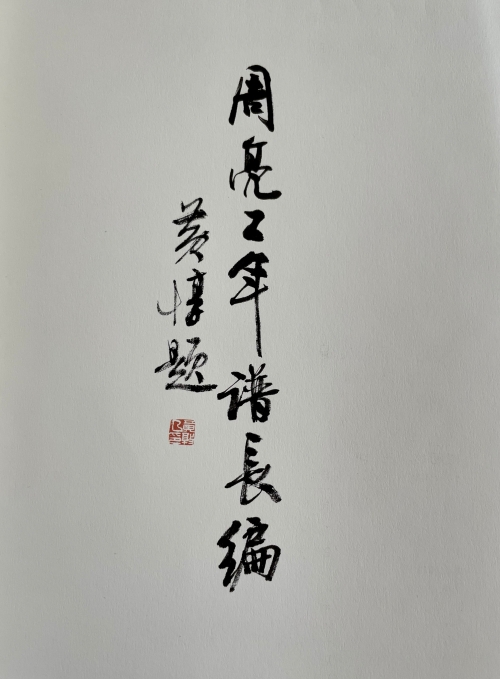 周亮工年谱長编
黄惇题